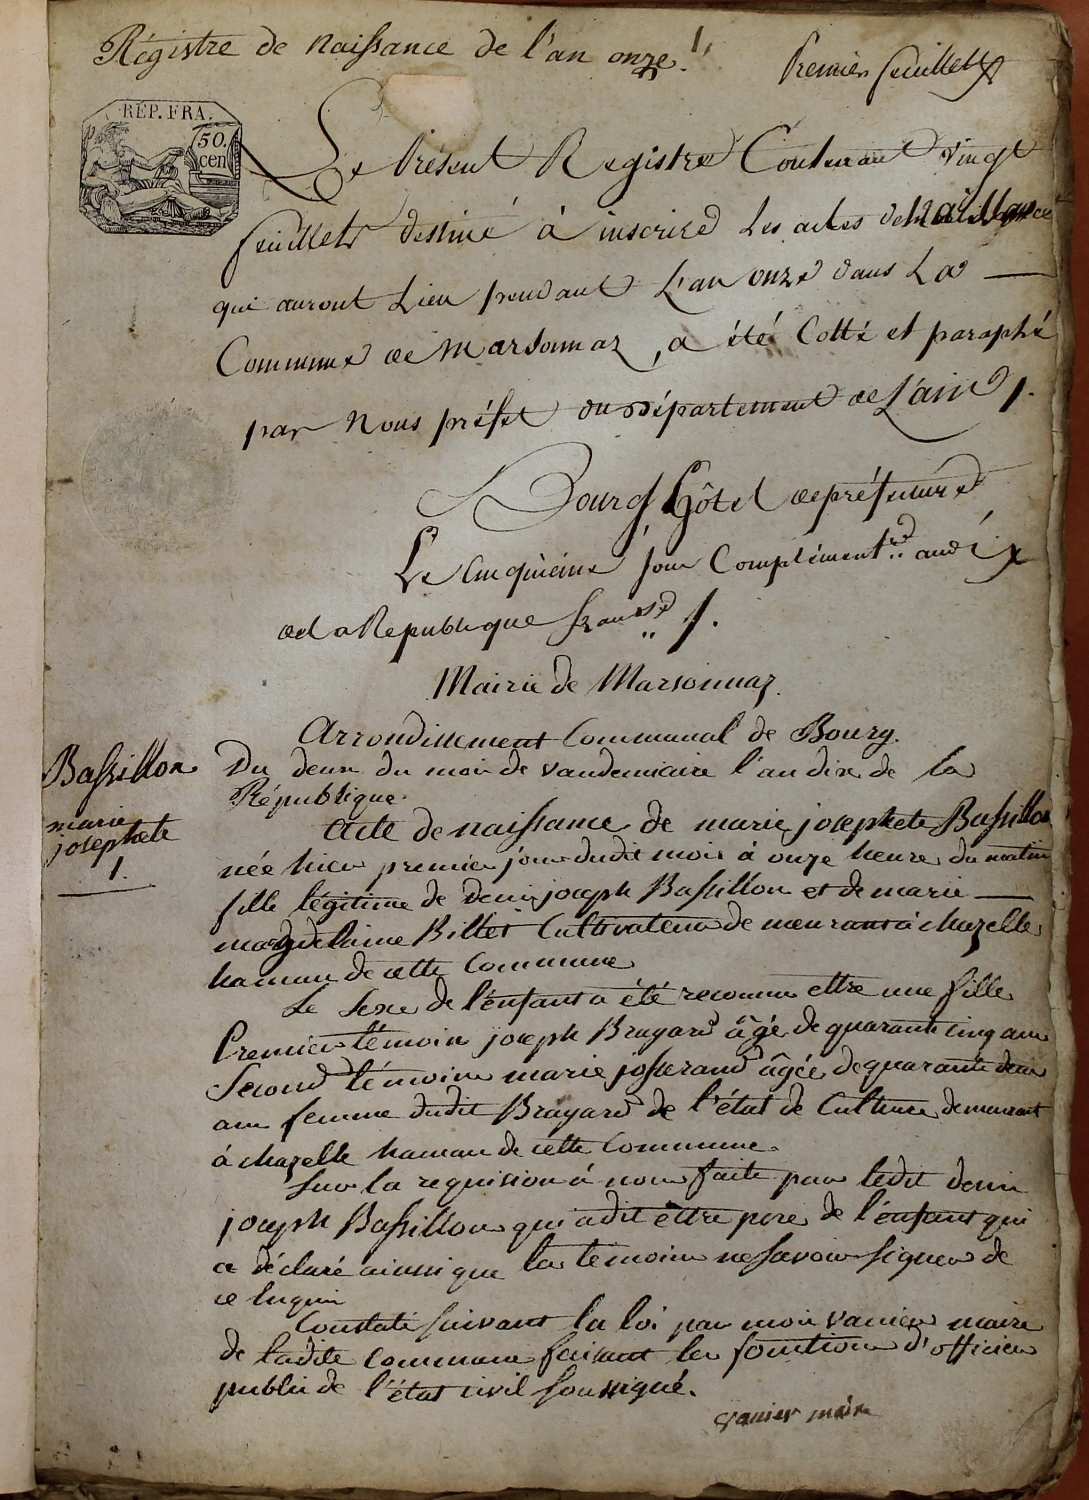 Régistre de naissance de l'an onze. 1.
Premier feuillet
REP. FRA.
50.
cen
Le Présent Registre Contenant vingt
feuillets destiné à inscrire Les actes de Naissance
qui auront Lieu pendant L'an onze dans La
Commune de Marsonnaz, a été Cotté et paraphé
par Nous préfet du Département de L'ain /.
Bourg Hôtel de préfecture
Le Cinquième jour Complément.re an dix
de La Republique franse /.
Mairie de Marsonnaz.
Arrondissement Communal de Bourg.
Bassillon
marie
josephete
1.
Du deux du mois de vandemiaire l'an dix de la
République.
Acte de naissance de marie josephete Bassillon
née hier premier jour dudit mois à onze heure du matin
fille légitime de denis joseph Bassillon et de marie
magdelaine Billet Cultivateur de meurant à chazelle
hamau de cette Commune
Le sexe de l'enfant a été reconnu ettre une fille
Premier témoin joseph Brayard âgé de quarante cinq ans
Second témoin marie josserand âgée de quarante deux
ans femme dudit Brayard de l'état de Culture demeurant
à chazelle hamau de cette Commune.
Sur la requision à nous faite par ledit denis
joseph Bassillon qui a dit ettre pere de l'enfant qui
a déclaré ainsi que les témoins ne savoir signer de
ce enquis
Constaté suivant la loi par moi vanier maire
de ladite commune faisant les fonction d'officier
public de l'état civil soussigné.
vanier maire